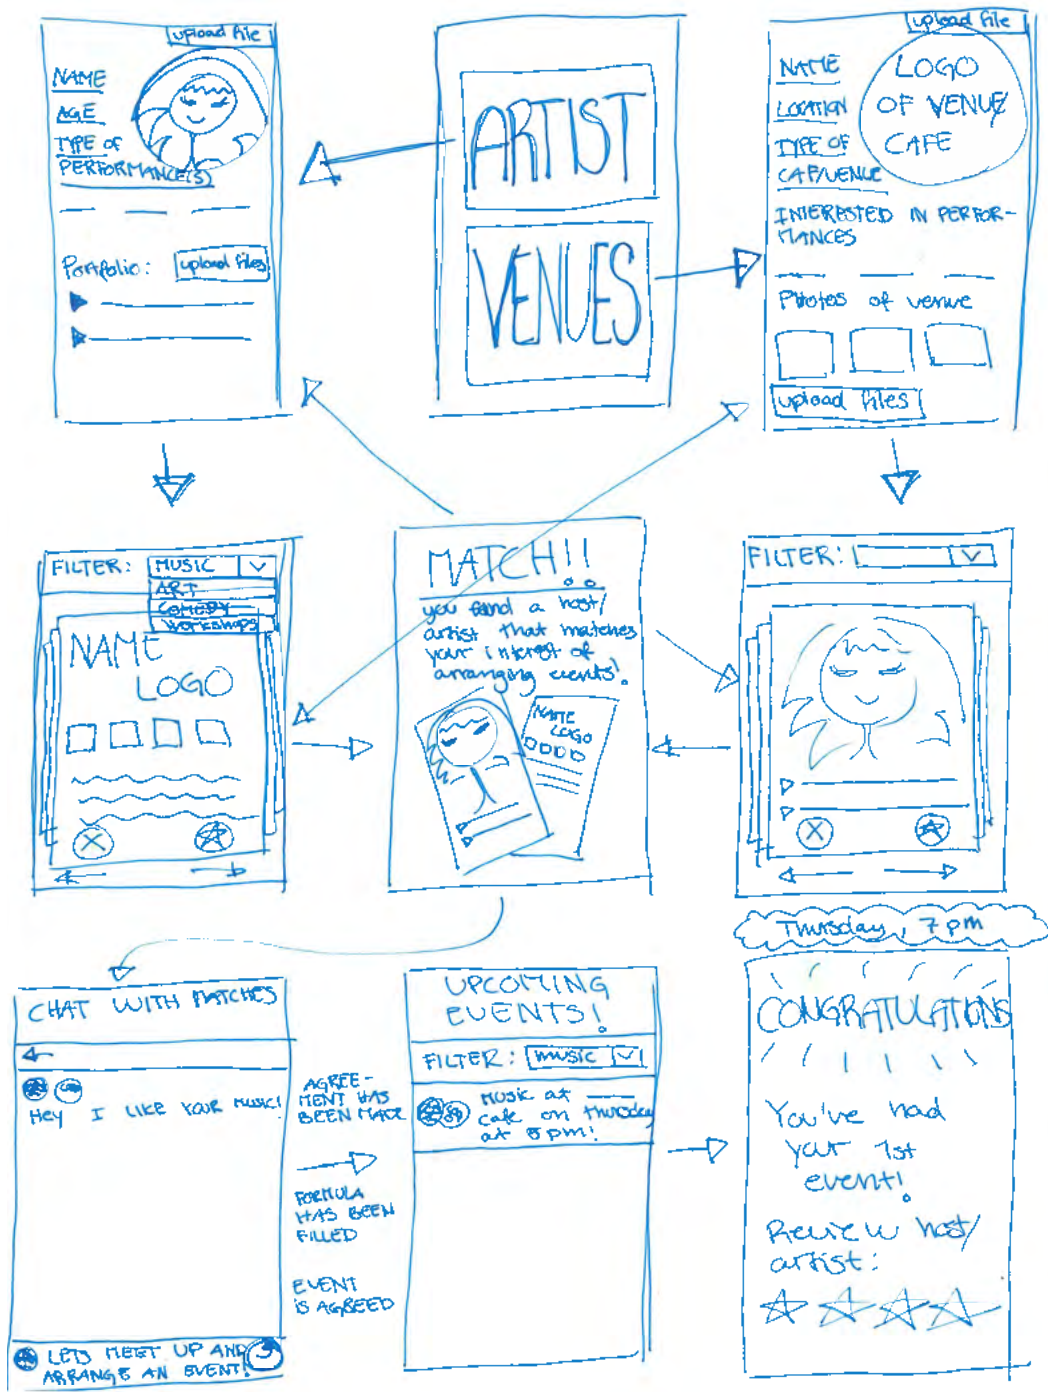 upload file
NAME
AGE
TYPE OF
PERFORMANCE(S)
Portfolio: upload files
ARTIST
VENUES
upload file
NAME
LOCATION
TYPE OF
CAF/VENUE
LOGO
OF VENUE/
CAFE
INTERESTED IN PERFOR-
MANCES
Photos of venue
upload files
FILTER: MUSIC
ART
COMEDY
Workshops
NAME
LOGO
MATCH!!
you found a host/
artist that matches
your interest of
arranging events!
NAME
LOGO
FILTER:
CHAT WITH MATCHES
Hey I LIKE YOUR MUSIC!
LETS MEET UP AND
ARRANGE AN EVENT!
AGREE-
MENT HAS
BEEN MADE
FORMULA
HAS BEEN
FILLED
EVENT
IS AGREED
UPCOMING
EVENTS!
FILTER: music
MUSIC at
cafe on thursday
at 8pm!
Thursday, 7 pm
CONGRATULATIONS
You've had
your 1st
event!
Review host/
artist: